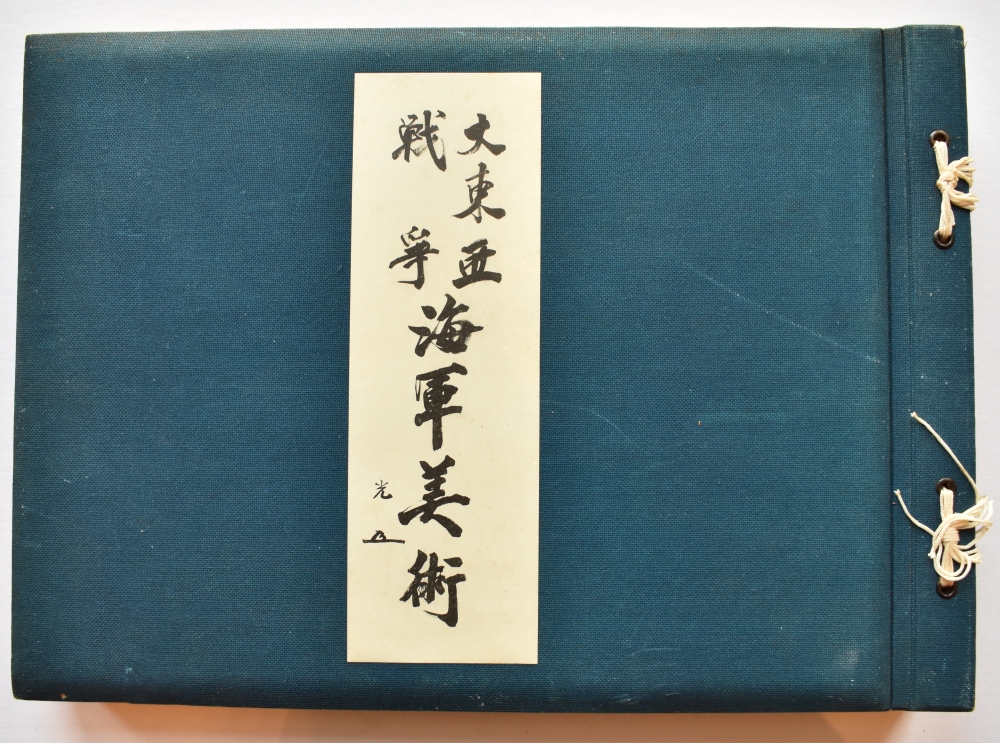 大東亜
戦爭
海軍美術
光五